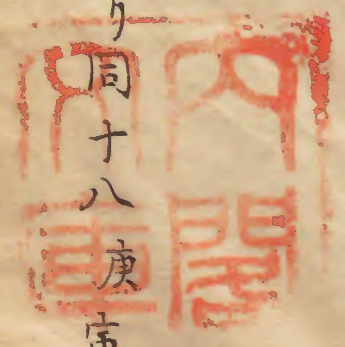 り同十八庚寅
内閣
文庫